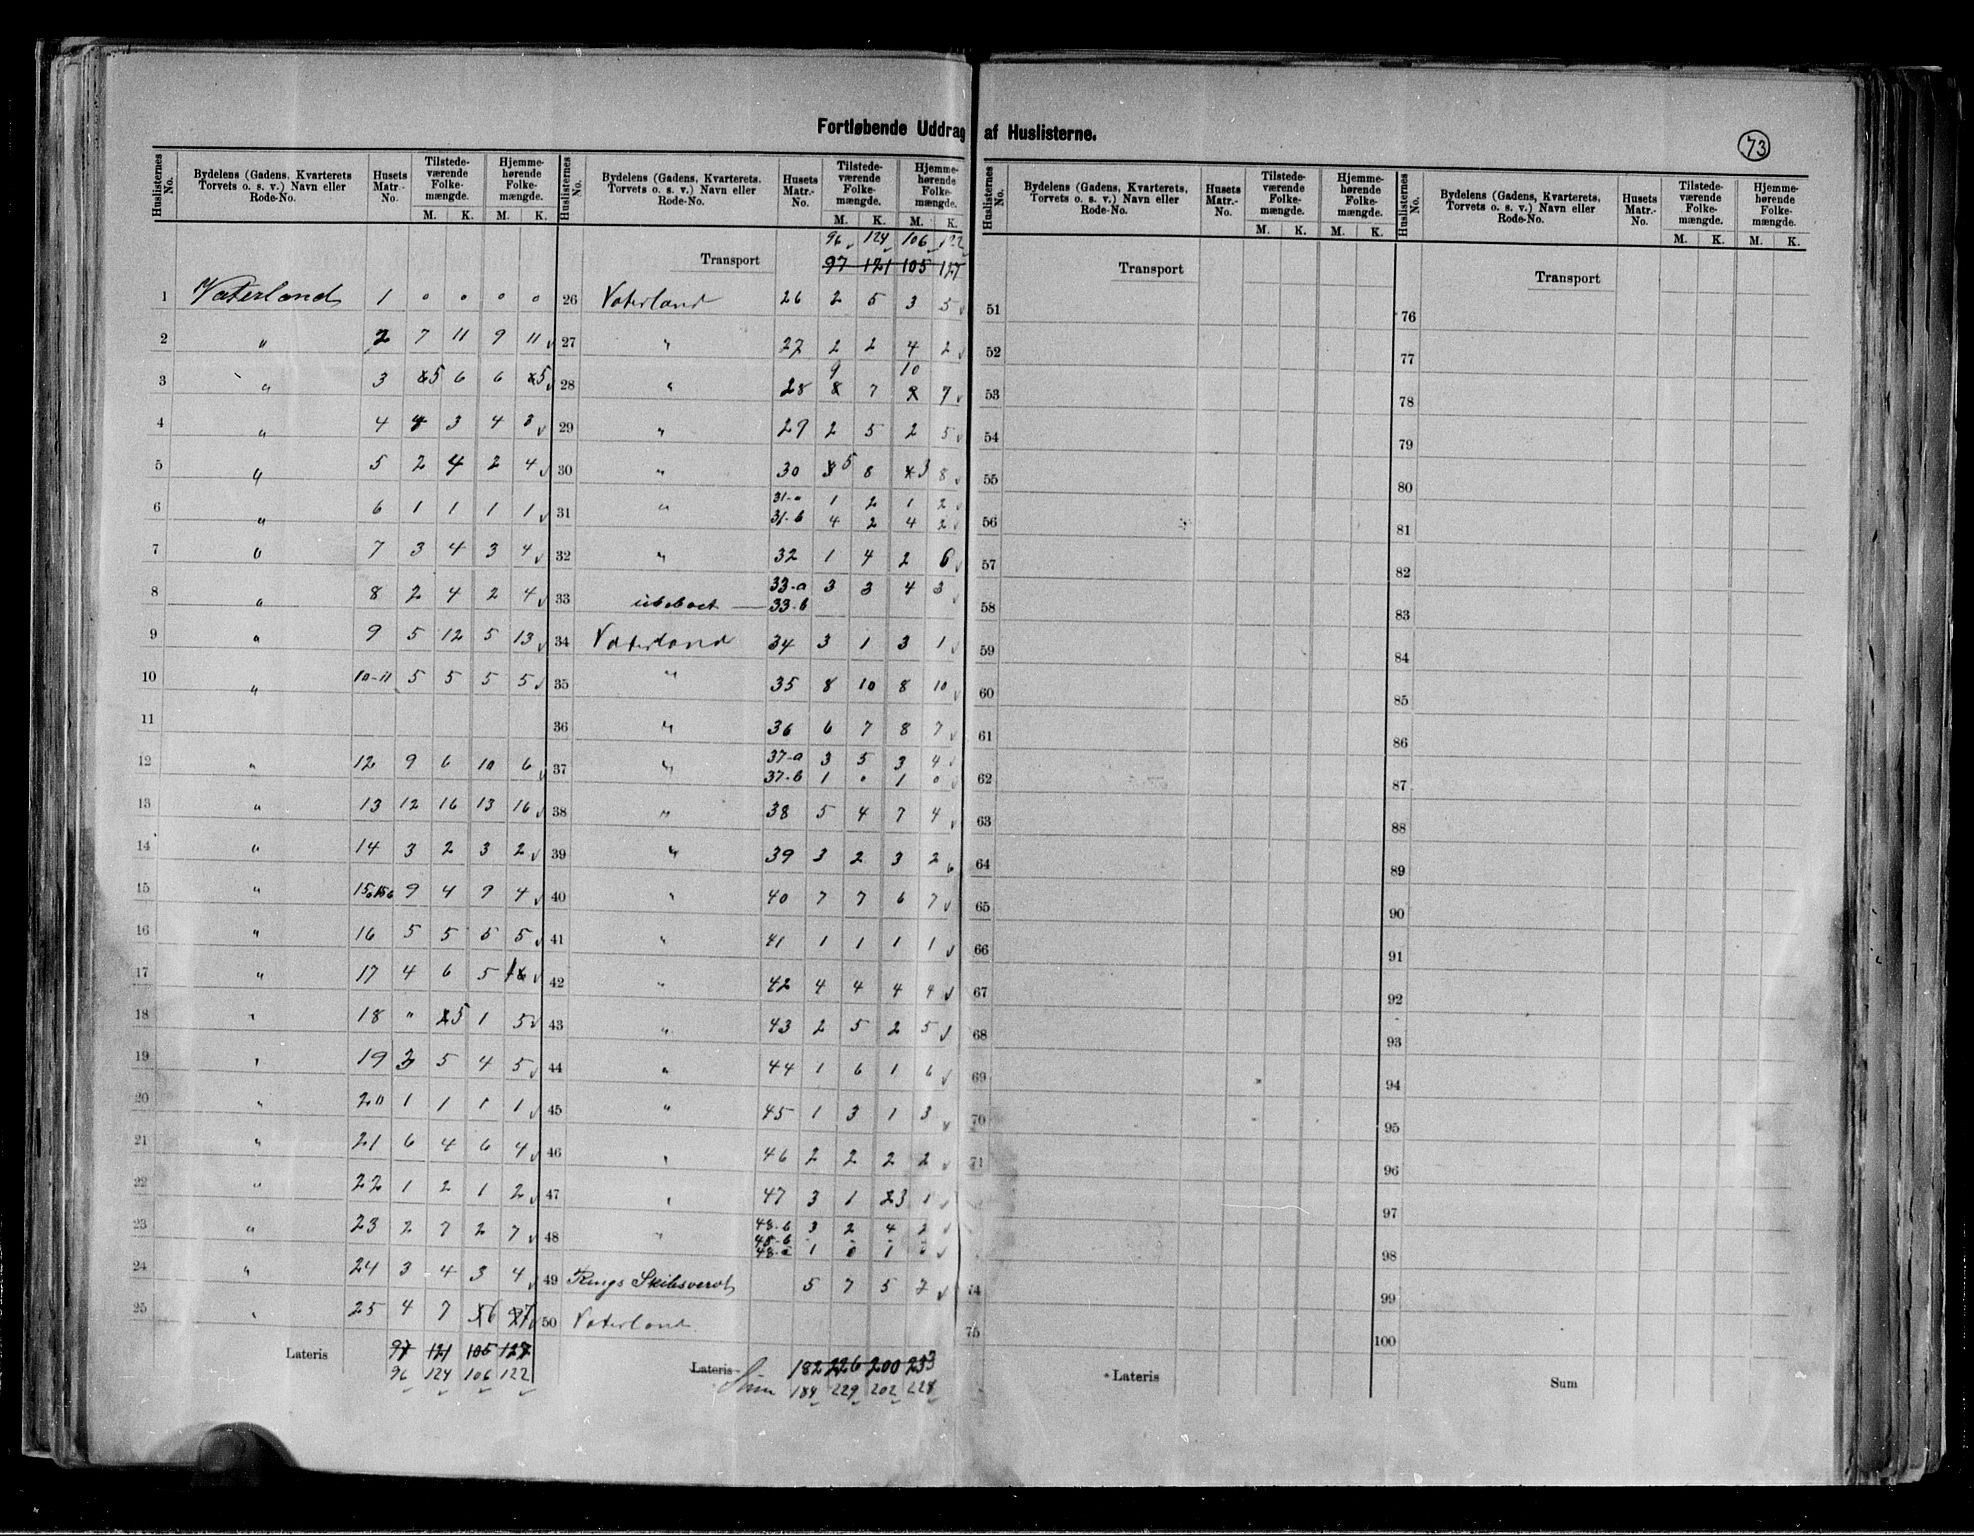 Fortløbende Uddrag af Huslisterne.
73
Huslisternes No. | Bydelens (Gadens, Kvarterets Torvets o. s. v.) Navn eller Rode-No. | Husets Matr.-No. | Tilstedeværende Folkemængde. M. K. | Hjemmehørende Folkemængde. M. K.
1 Vaterland 1 0 0 0 0
2 " 2 7 11 9 11
3 " 3 5 6 6 5
4 " 4 4 3 4 3
5 " 5 2 4 2 4
6 " 6 1 1 1 1
7 " 7 3 4 3 4
8 " 8 2 4 2 4
9 " 9 5 12 5 13
10 " 10-11 5 5 5 5
11
12 " 12 9 6 10 6
13 " 13 12 16 13 16
14 " 14 3 2 3 2
15 " 9 4 9 4
16 " 16 5 5 5 5
17 " 17 4 6 5
18 " 18 " 5 1 5
19 " 19 3 5 4 5
20 " 20 1 1 1 1
21 " 21 6 4 6 4
22 " 22 1 2 1 2
23 " 23 2 7 2 7
24 " 24 3 4 3 4
25 " 25 4 7 6 7
Lateris 97 121 105 127
96 124 106 122
Huslisternes No. | Bydelens (Gadens, Kvarterets, Torvets o. s. v.) Navn eller Rode-No. | Husets Matr.-No. | Tilstedeværende Folkemængde. M. K. | Hjemmehørende Folkemængde. M. K.
96 124 106 122
Transport 97 121 105 127
26 Vaterland 26 2 5 3 5
27 " 27 2 2 4 2
9 10
28 " 28 8 7 9 7
29 " 29 2 5 2 5
30 " 30 5 8 3 8
31 " 31-a 1 2 1 2
31-b 4 2 4 2
32 " 32 1 4 2 6
33 33-a 3 3 4 3
ubeboet 33-b
34 Vaterland 34 3 1 3 1
35 " 35 8 10 8 10
36 " 36 6 7 8 7
37 " 37-a 3 5 3 4
37-b 1 0 1 0
38 " 38 5 4 7 4
39 " 39 3 2 3 2
40 " 40 7 7 6 7
41 " 41 1 1 1 1
42 " 42 4 4 4 4
43 " 43 2 5 2 5
44 " 44 1 6 1 6
45 " 45 1 3 1 3
46 " 46 2 2 2 2
47 " 47 3 1 3 1
48 " 48-b 3 2 4 2
48-a 1 0 1 0
49 Rings Skibsverft 5 7 5 7
50 Vaterland
Lateris 182 226 200 233
Sum 184 229 202 228
Huslisternes No. | Bydelens (Gadens, Kvarterets, Torvets o. s. v.) Navn eller Rode-No. | Husets Matr.-No. | Tilstedeværende Folkemængde. M. K. | Hjemmehørende Folkemængde. M. K.
Transport
51
52
53
54
55
56
57
58
59
60
61
62
63
64
65
66
67
68
69
70
71
74
75
Lateris
Huslisternes No. | Bydelens (Gadens, Kvarterets, Torvets o. s. v.) Navn eller Rode-No. | Husets Matr.-No. | Tilstedeværende Folkemængde. M. K. | Hjemmehørende Folkemængde. M. K.
Transport
76
77
78
79
80
81
82
83
84
85
86
87
88
89
90
91
92
93
94
95
96
97
98
99
100
Sum